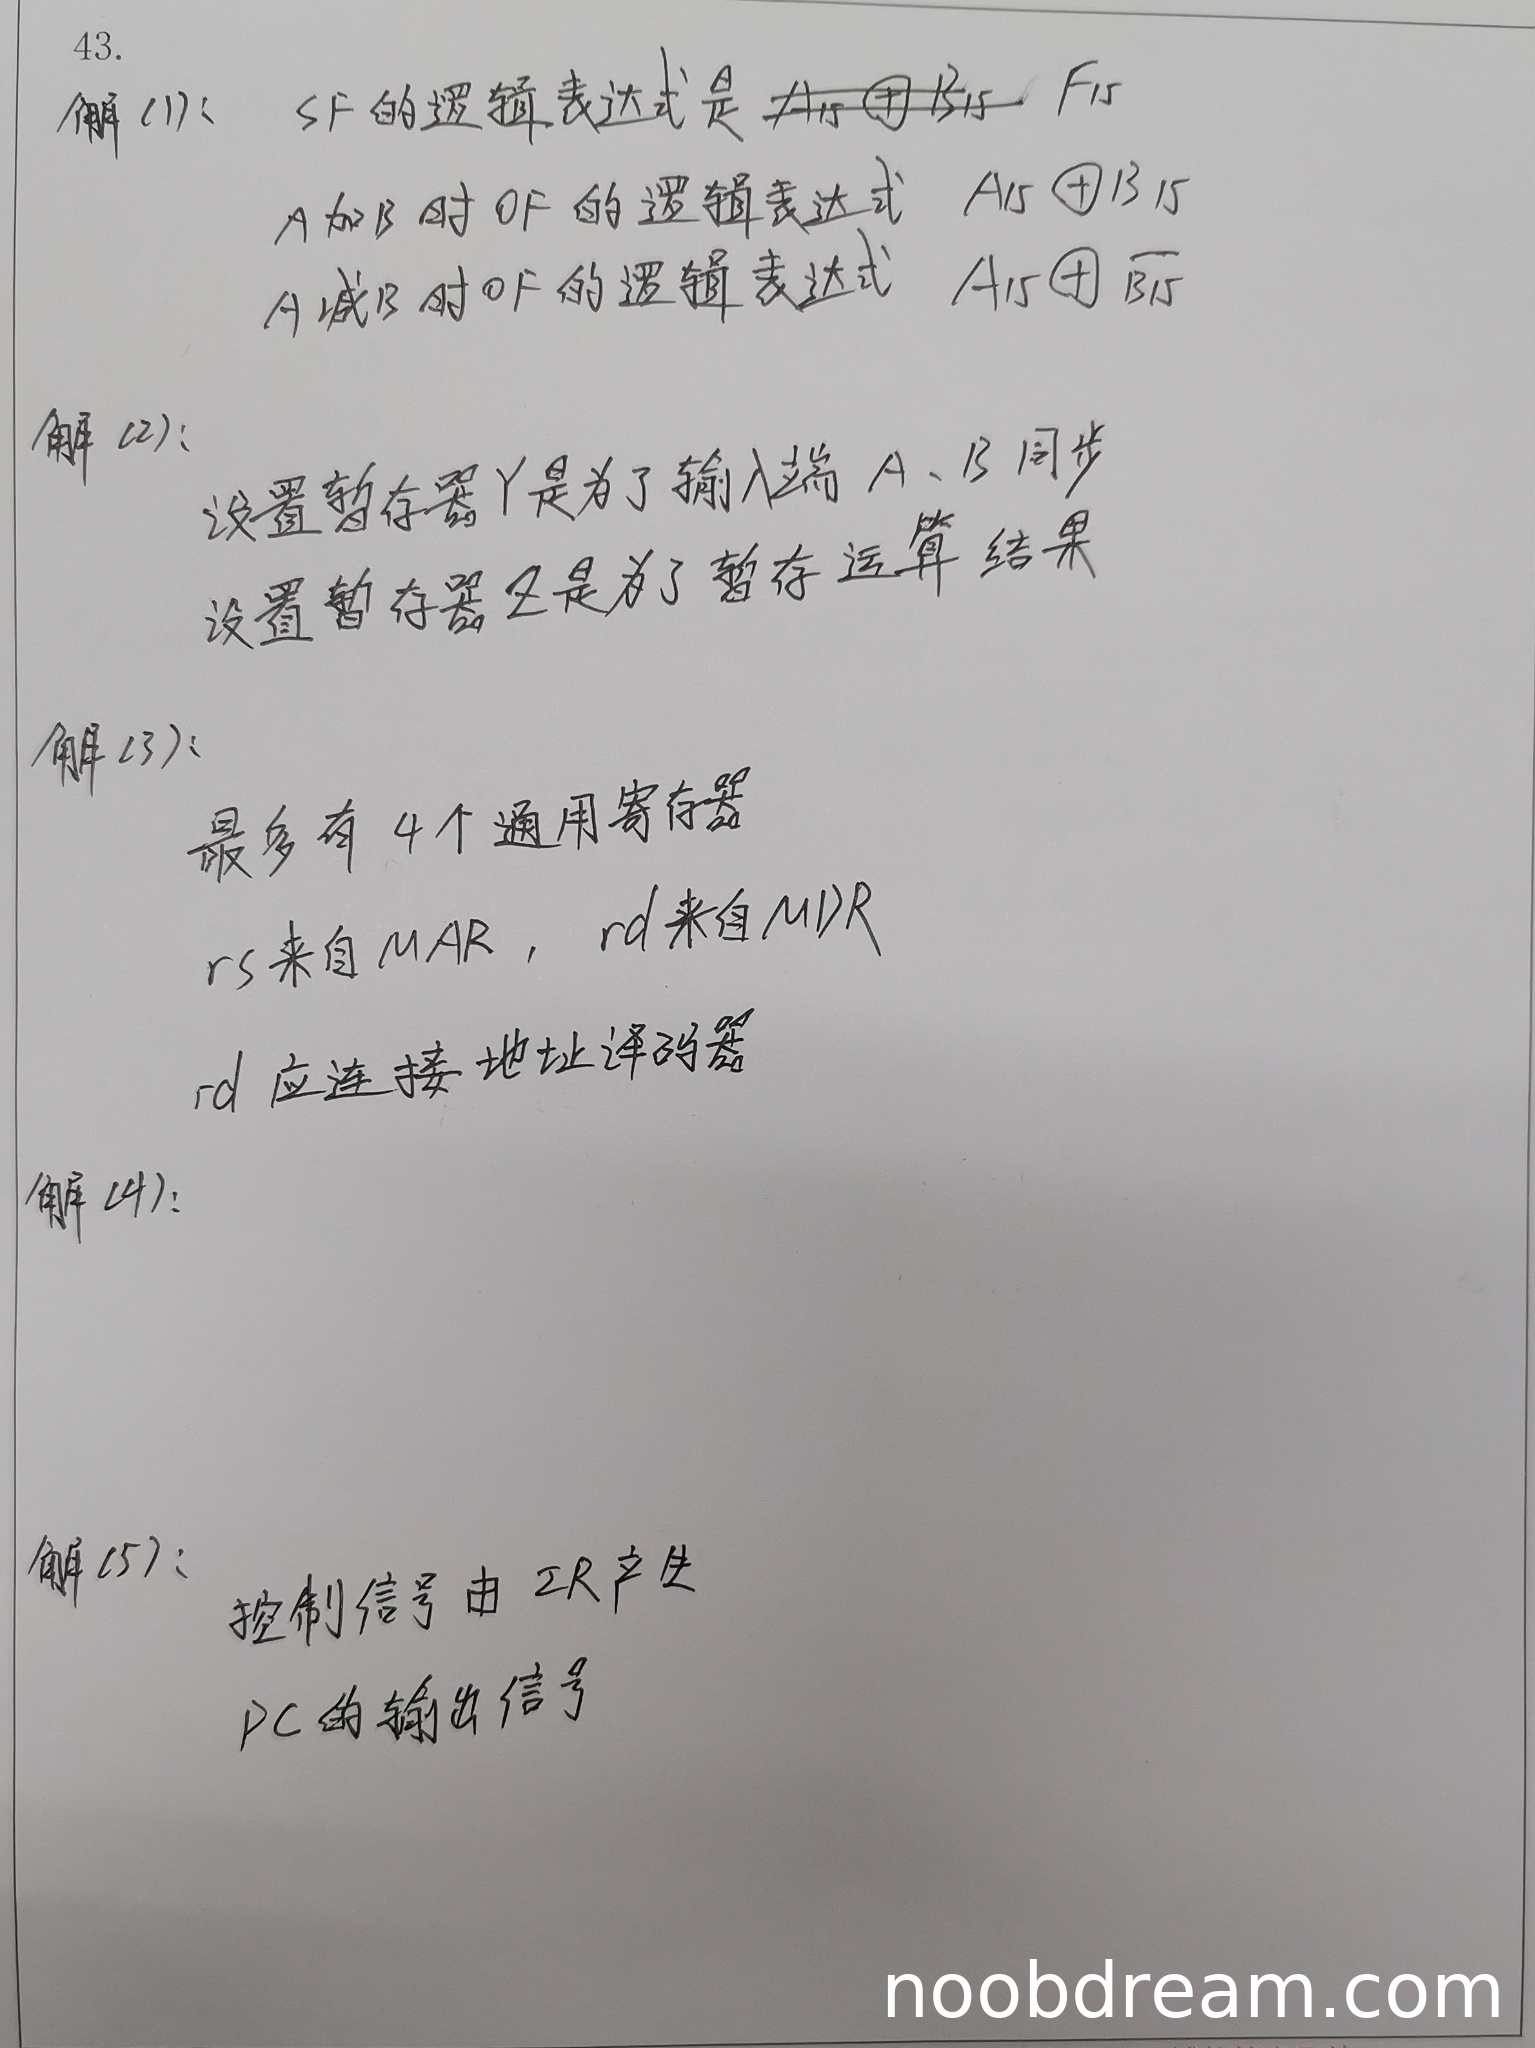 43.
解(1): SF的逻辑表达式是 A15⊕B15 F15
A加B时OF的逻辑表达式 A15⊕B15
A减B时OF的逻辑表达式 A15⊕B̅1̅5̅
解(2):
设置暂存器Y是为了输入端A、B同步
设置暂存器Z是为了暂存运算结果
解(3):
最多有4个通用寄存器
rs来自MAR, rd来自MDR
rd应连接地址译码器
解(4):
解(5):
控制信号由IR产生
PC的输出信号
noobdream.com